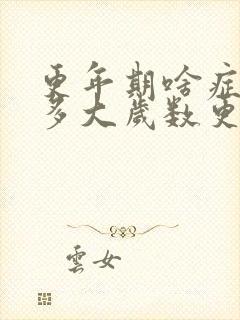 更年期啥症
多大歲数更
雲女